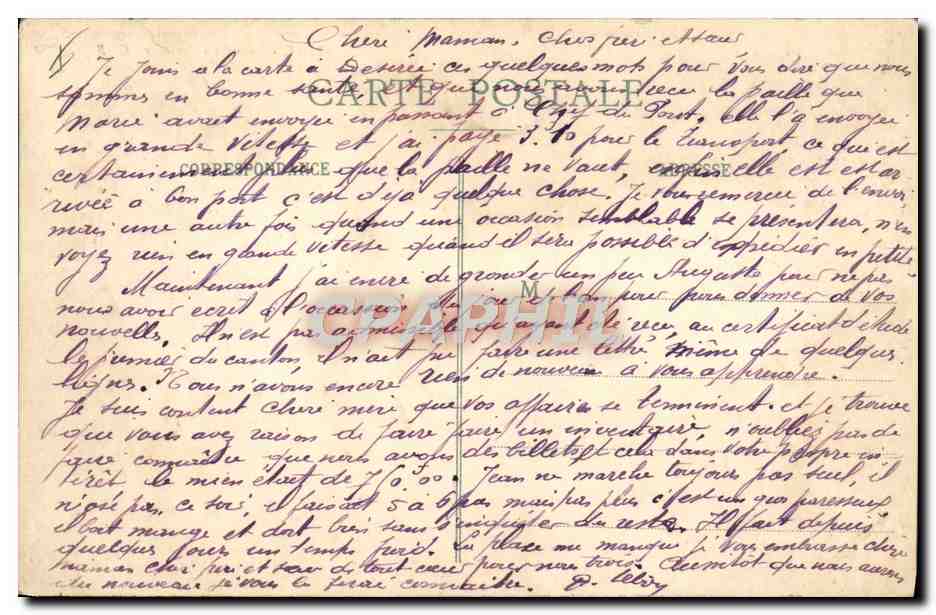 Chère Maman, Cher frère et Sœur
Je joins a la carte à Desirée ces quelques mots pour vous dire que nous
sommes en bonne santé et que nous avons reçu la paille que
CARTE POSTALE
Marie avait envoyée en passant à du Pont. elle l'a envoyée
en grande vitesse et j'ai payé 3.10 pour le transport, ce qui est
CORRESPONDANCE
ADRESSE
certainement plus que la paille ne vaut, enfin elle est est ar
rivée à bon port c'est déja quelque chose. Je vous remercie de l'envoi
mais une autre fois quand une occasion semblable se presentera, n'en
voyez rien en grande vitesse quand il sera possible d'expedier en petite
Maintenant j'ai envie de gronder un peu Auguste pour ne pas
M
nous avoir ecrit à l'occasion du jour de l'an pour nous donner de vos
CPAPHIL
nouvelles. Il n'est pas admissible qu'ayant été reçu, au certificat d'étude
le premier du canton, il n'ait pu faire une lettre même de quelques
lignes. Nous n'avons encore rien de nouveau à vous apprendre.
Je suis content chère mère que vos affaires se terminent. et je trouve
que vous avez raison de faire faire un inventaire, n'oubliez pas de
faire connaître que nous avons des billets, et cela dans votre propre in
térêt le mien était de 750.00. Jean ne marche toujours pas seul, il
n'ose pas, ce soir, il faisait 5 à 6 pas mais pas plus c'est un gros paresseux
il boit mange et dort bien sans s'inquiéter du reste. Il fait depuis
quelques jours un temps froid. La place me manque je vous embrasse chère
maman cher frère et sœur de tout cœur pour nous trois. Aussitôt que nous aurons
du nouveau je vous le ferai connaître.